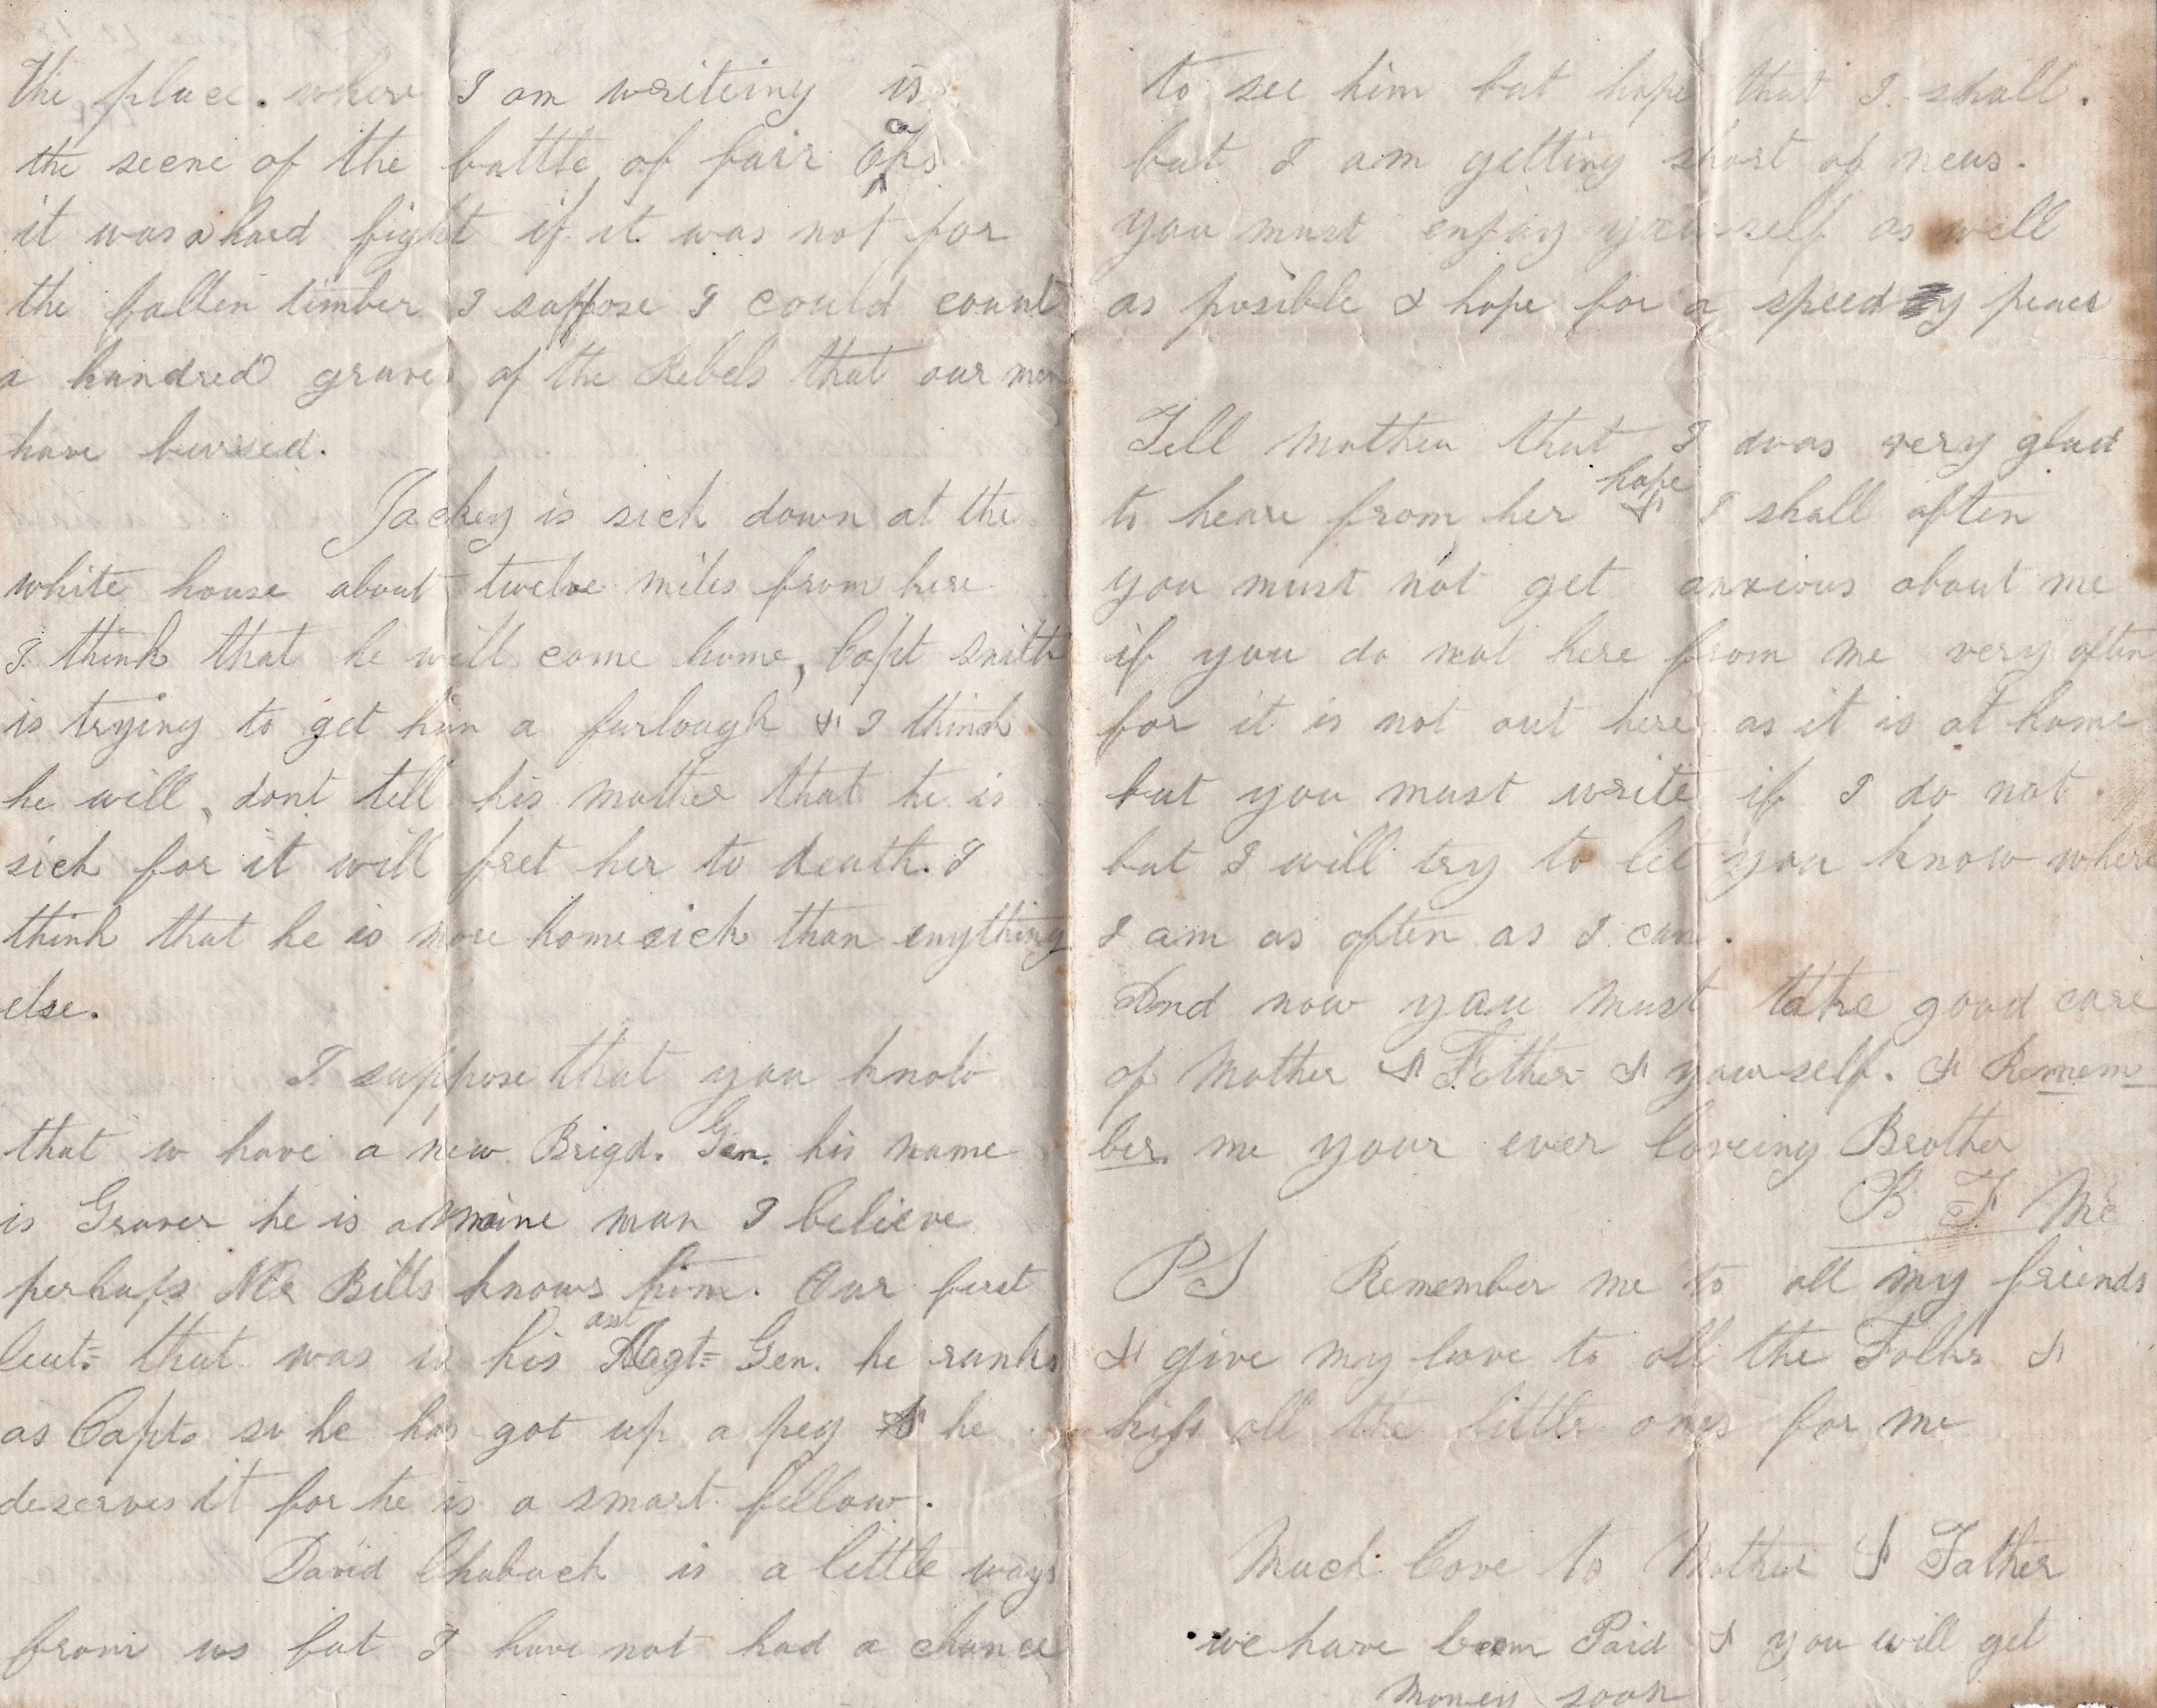 The place where I am writeing is
the scene of the battle of fair Oaks
it was a hard fight if it was not for
the fallen timber I suppose I could count
a hundred graves of the Rebels that our men
have buried.
Jackey is sick down at the
white house about twelve miles from here
I think that he will come home, Capt Smith
is trying to get him a furlough & I think
he will, dont tell his mother that he is
sick for it will fret her to death. I
think that he is more homesick than enything
else.
I suppose that you know
that w have a new Brigd. Gen. his name
is Grover he is a maine man I believe
perhaps Mr Bills knows him. Our first
leut= that was is his asst Adgt= Gen. he ranks
as Capt. so he has got up a peg & he
deserves it for he is a smart fellow.
David Chubuck is a little ways
from us but I have not had a chance
to see him but hope that I shall.
but I am getting short of news.
you must enjoy yourself as well
as posible & hope for a speedy peace
Tell Mother that I was very glad
to heare from her & hope I shall often
you must not get anxious about me
if you do not here from me very often
for it is not out here as it is at home
but you must write if I do not.
but I will try to let you know where
I am as often as I can.
And now you must take good care
of Mother & Father & yourself. & Remem
ber me your ever loveing Brother
B F Mc
PS Remember me to all my friends
& give my love to all the Folks &
kiss all the little ones for me
Much love to Mother & Father
we have been Paid & you will get
money soon